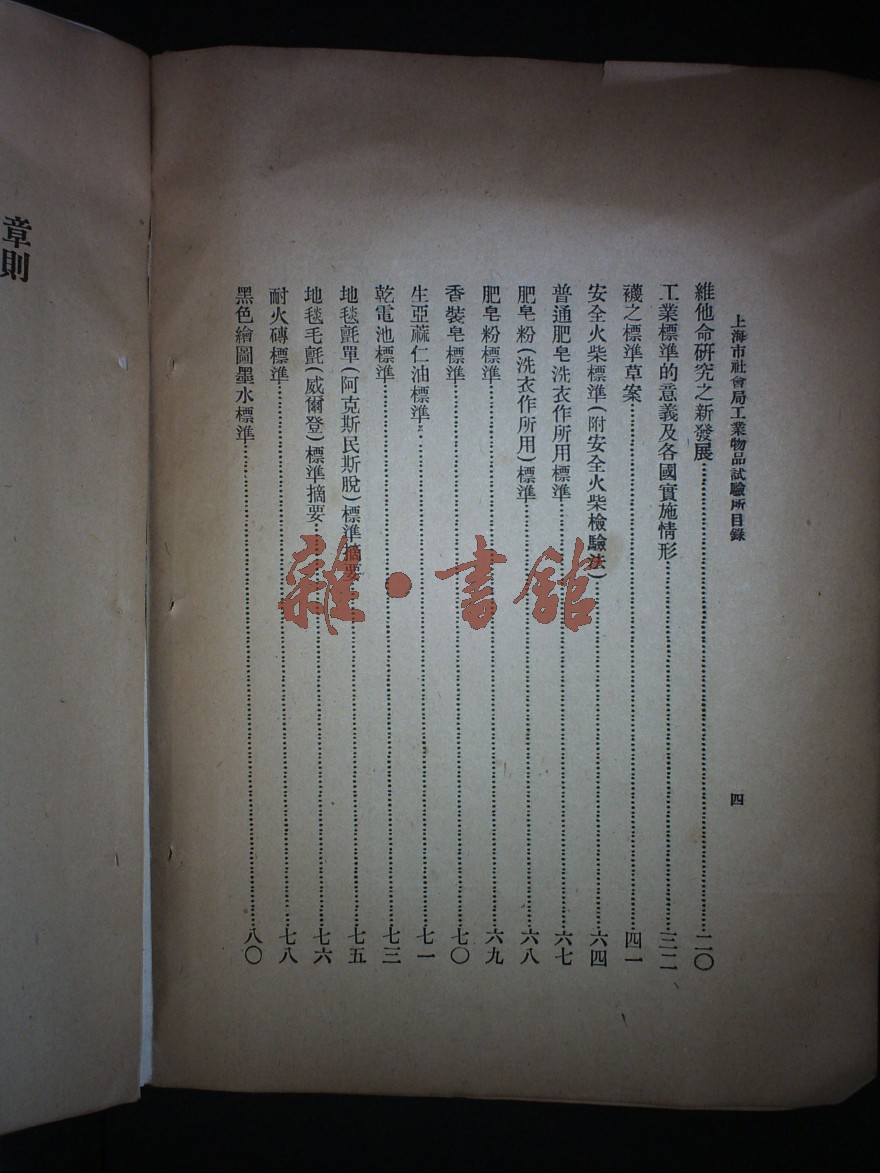 上海市社會局工業物品試驗所目錄
四
維他命研究之新發展……二〇
工業標準的意義及各國實施情形……三二
襪之標準草案……四一
安全火柴標準(附安全火柴檢驗法)……六四
普通肥皂洗衣作所用標準……六七
肥皂粉(洗衣作所用)標準……六八
肥皂粉標準……六九
香裝皂標準……七〇
生亞蔴仁油標準……七一
乾電池標準……七三
地毯氈單(阿克斯民斯脫)標準摘要……七五
地毯毛氈(威爾登)標準摘要……七六
耐火磚標準……七八
黑色繪圖墨水標準……八〇
章則
雜·書館